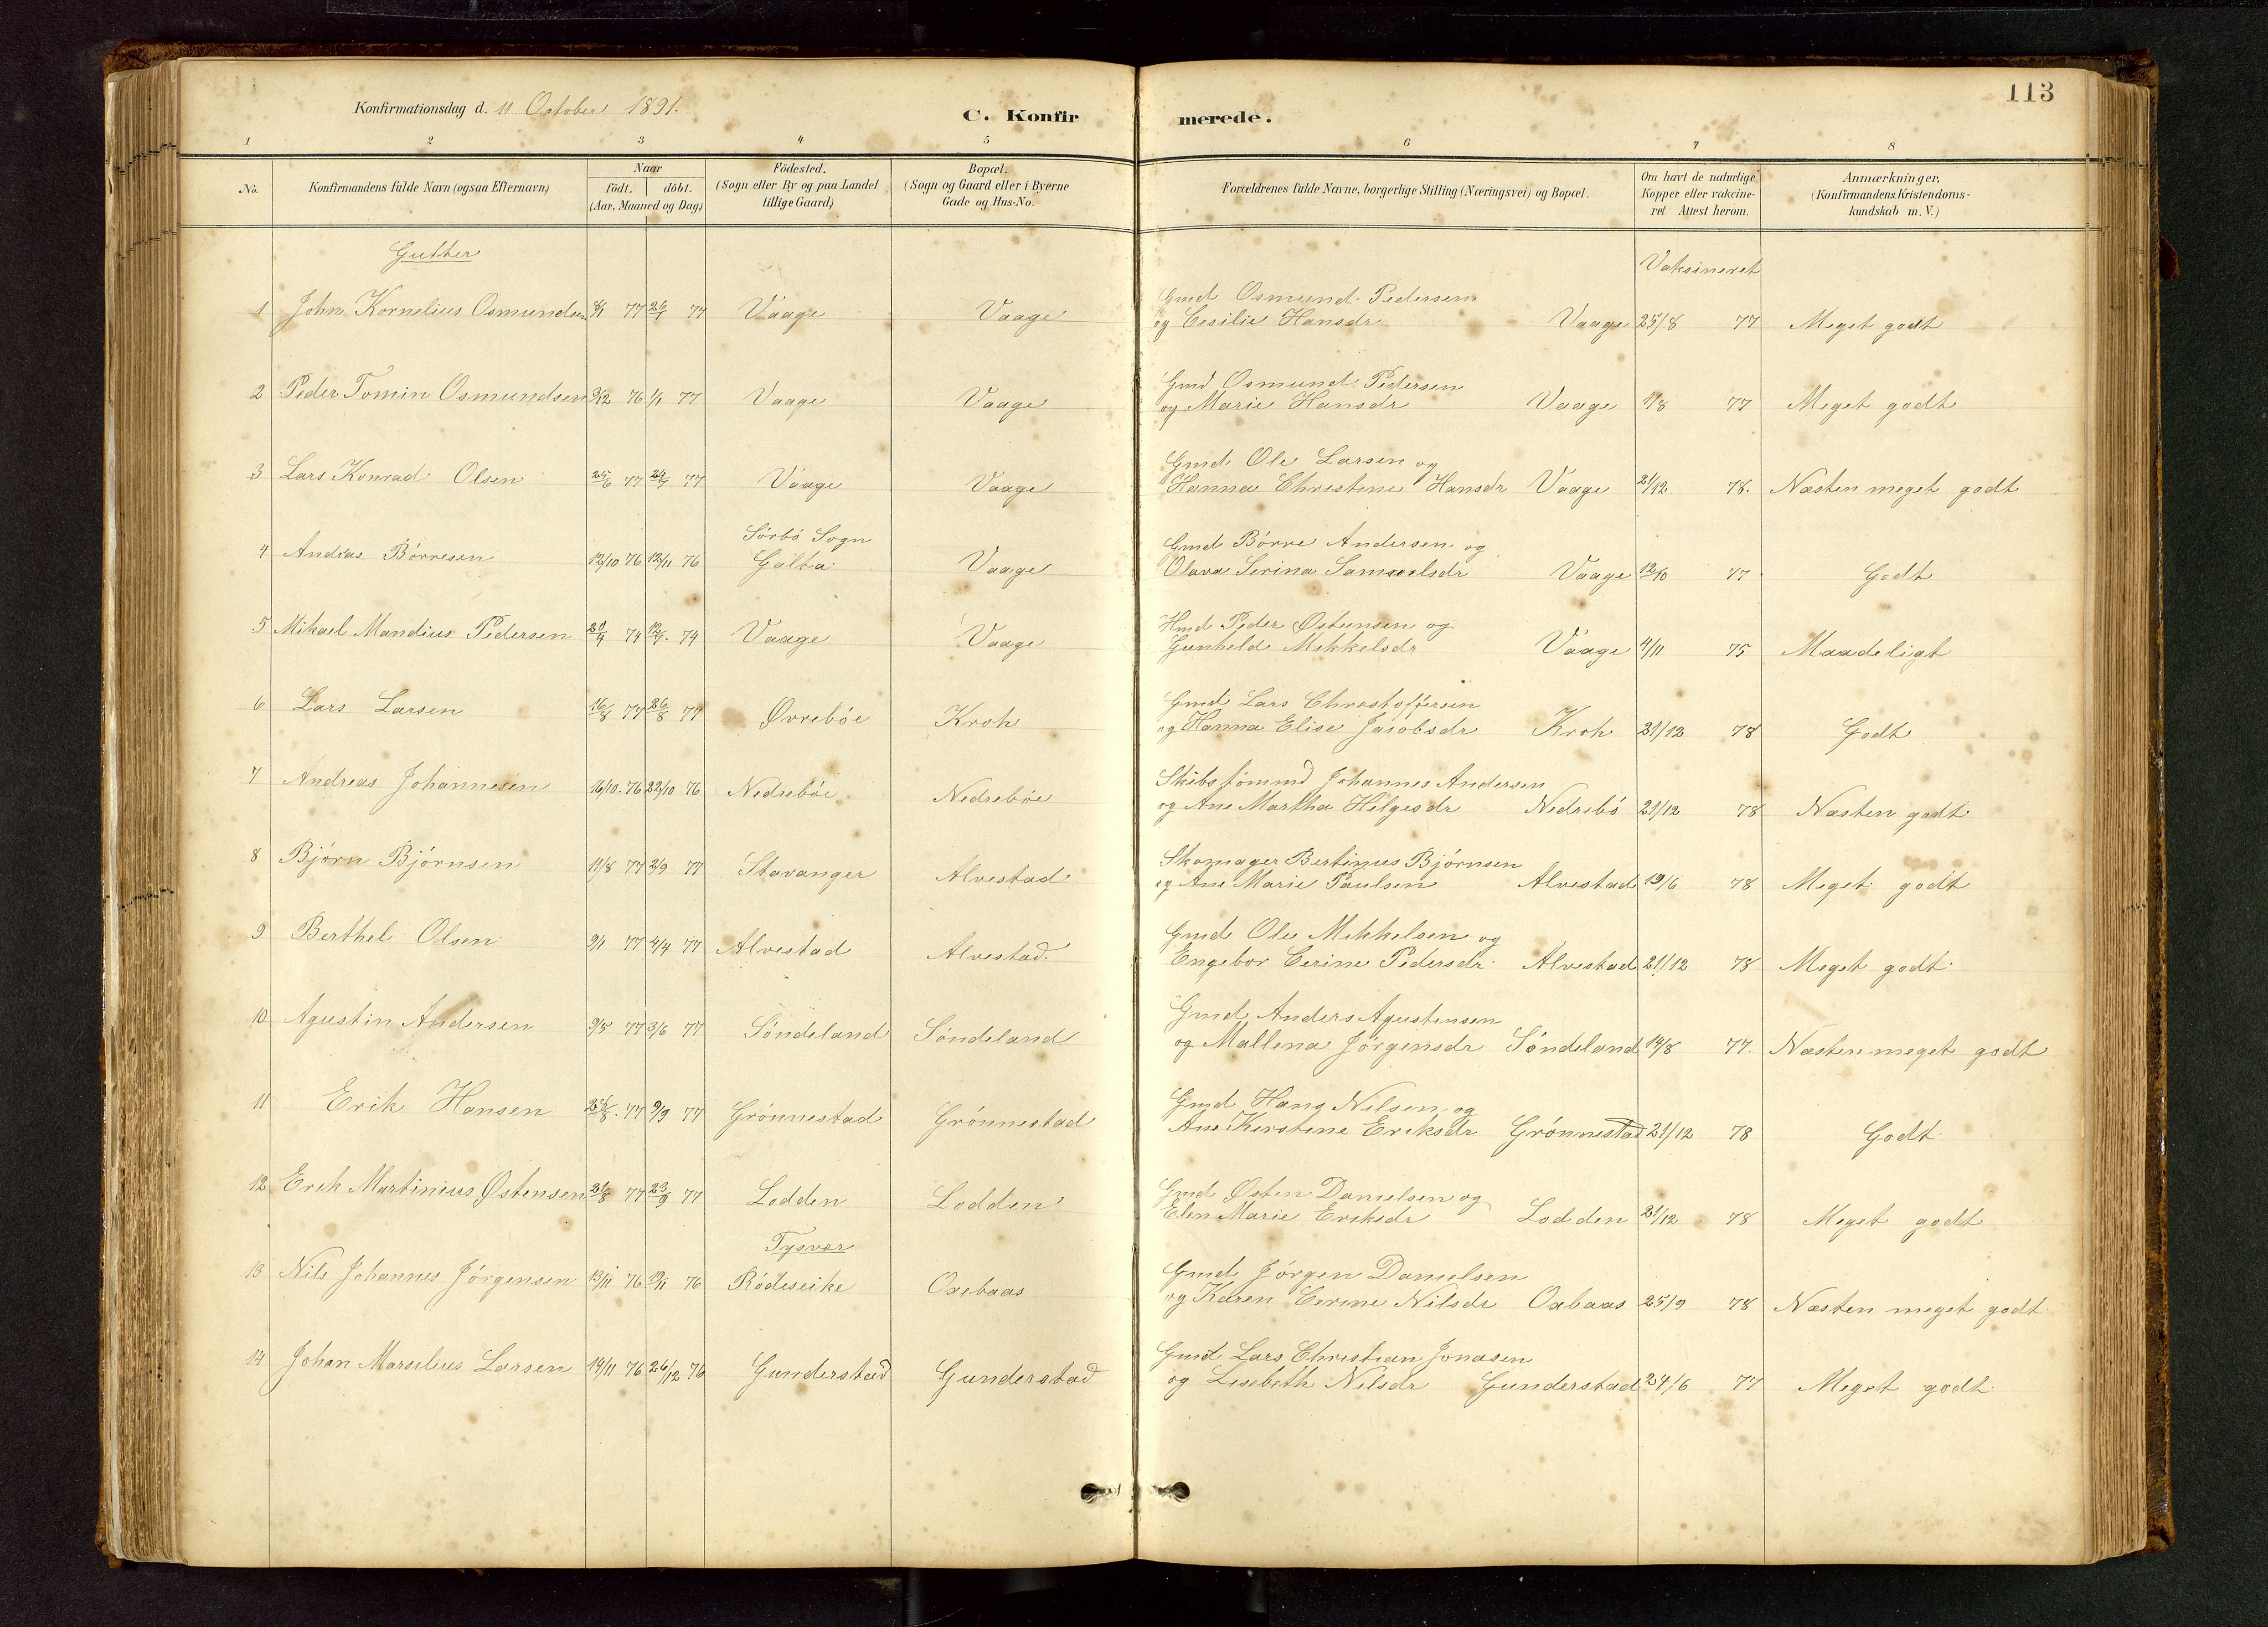 113
Konfirmationsdag d. 11 October 1891.
C. Konfirmerede.
1 2 3 4 5 6 7 8
No. Konfirmandens fulde Navn (ogsaa Efternavn) Naar födt. döbt. (Aar, Maaned og Dag) Födested. (Sogn eller By og paa Landet tillige Gaard) Bopæl. (Sogn og Gaard eller i Byerne Gade og Hus-No. Forældrenes fulde Navne, borgerlige Stilling (Næringsvei) og Bopæl. Om havt de naturlige Kopper eller vakcineret. Attest herom. Anmærkninger, (Konfirmandens Kristendomskundskab m. V.)
Gutter
Vaksineret
1 John Kornelius Osmundsen 77 77 Vaage Vaage Gmd Osmund Pedersen
og Cesilie Hansdr Vaage 25/8 77 Meget godt
2 Peder Tomin Osmundsen 76 1/1 77 Vaage Vaage Gmd Osmund Pedersen
og Marie Hansdr Vaage 77 Meget godt
3 Lars Konrad Olsen 25/6 77 77 Vaage Vaage Gmd Ole Larsen og
Hanna Christine Hansdr Vaage 21/12 78. Næsten meget godt
4 Andras Börresen 12/10 76 12/11 76 Sörbö Sogn
Galta Vaage Gmd Börre Andersen og
Olava Serina Samuelsdr Vaage 12/10 77 Godt
5 Mikael Mandius Pedersen 74 74 Vaage Vaage Hmd Peder Østensen og
Gunhelde Mikkelsdr Vaage 4/11 75 Maadeligt
6 Lars Larsen 16/8 77 26/8 77 Øvreböe Kroh Gmd Lars Chrestoffersen
og Hanna Elise Jacobsdr Kroh 21/12 78 Godt
7 Andreas Johannesen 16/10. 76 22/10 76 Nedreböe Nedreböe Skibstömmd Johannes Andersen
og Ane Martha Helgesdr Nedrebö 21/12 78 Næsten godt
8 Björn Björnsen 11/8 77 2/9 77 Stavanger Alvestad Skomager Bertinius Björnsen
og Ane Marie Paulsen Alvestad 19/6 78 Meget godt
9 Berthel Olsen 77 4/4 77 Alvestad Alvestad. Gmd Ole Mikkelsen og
Engebor Cerine Pedersdr Alvestad 21/12 78 Meget godt
10 Agustin Andersen 9/5 77 3/6 77 Söndeland Söndeland Gmd Anders Agustensen
og Mallena Jörgensdr Söndeland 14/8 77. Næsten meget godt
11 Erik Hansen 77 9/9 77 Grönnestad Grönnestad Gmd Hans Nilsen og
Ane Kirstine Eriksdr Grönnestad 21/12 78 Godt
12 Erik Martinius Østensen 21/8 77 23/9 77 Lodden Lodden Gmd Østen Danielsen og
Elen Marie Eriksdr Lodden 21/12 78 Meget godt
13 Nils Johannes Jörgensen 13/11 76 19/11 76 Tysvær
Rödeseike Oxebaas Gmd Jörgen Danielsen
og Karen Cerine Nilsdr Oxbaas 25/9 78 Næsten meget godt
14 Johan Marselius Larsen 19/11 76 26/12 76 Gunderstad Gunderstad Gmd Lars Christian Jonasen
og Lisebeth Nilsdr Gunderstad 24/6 77 Meget godt